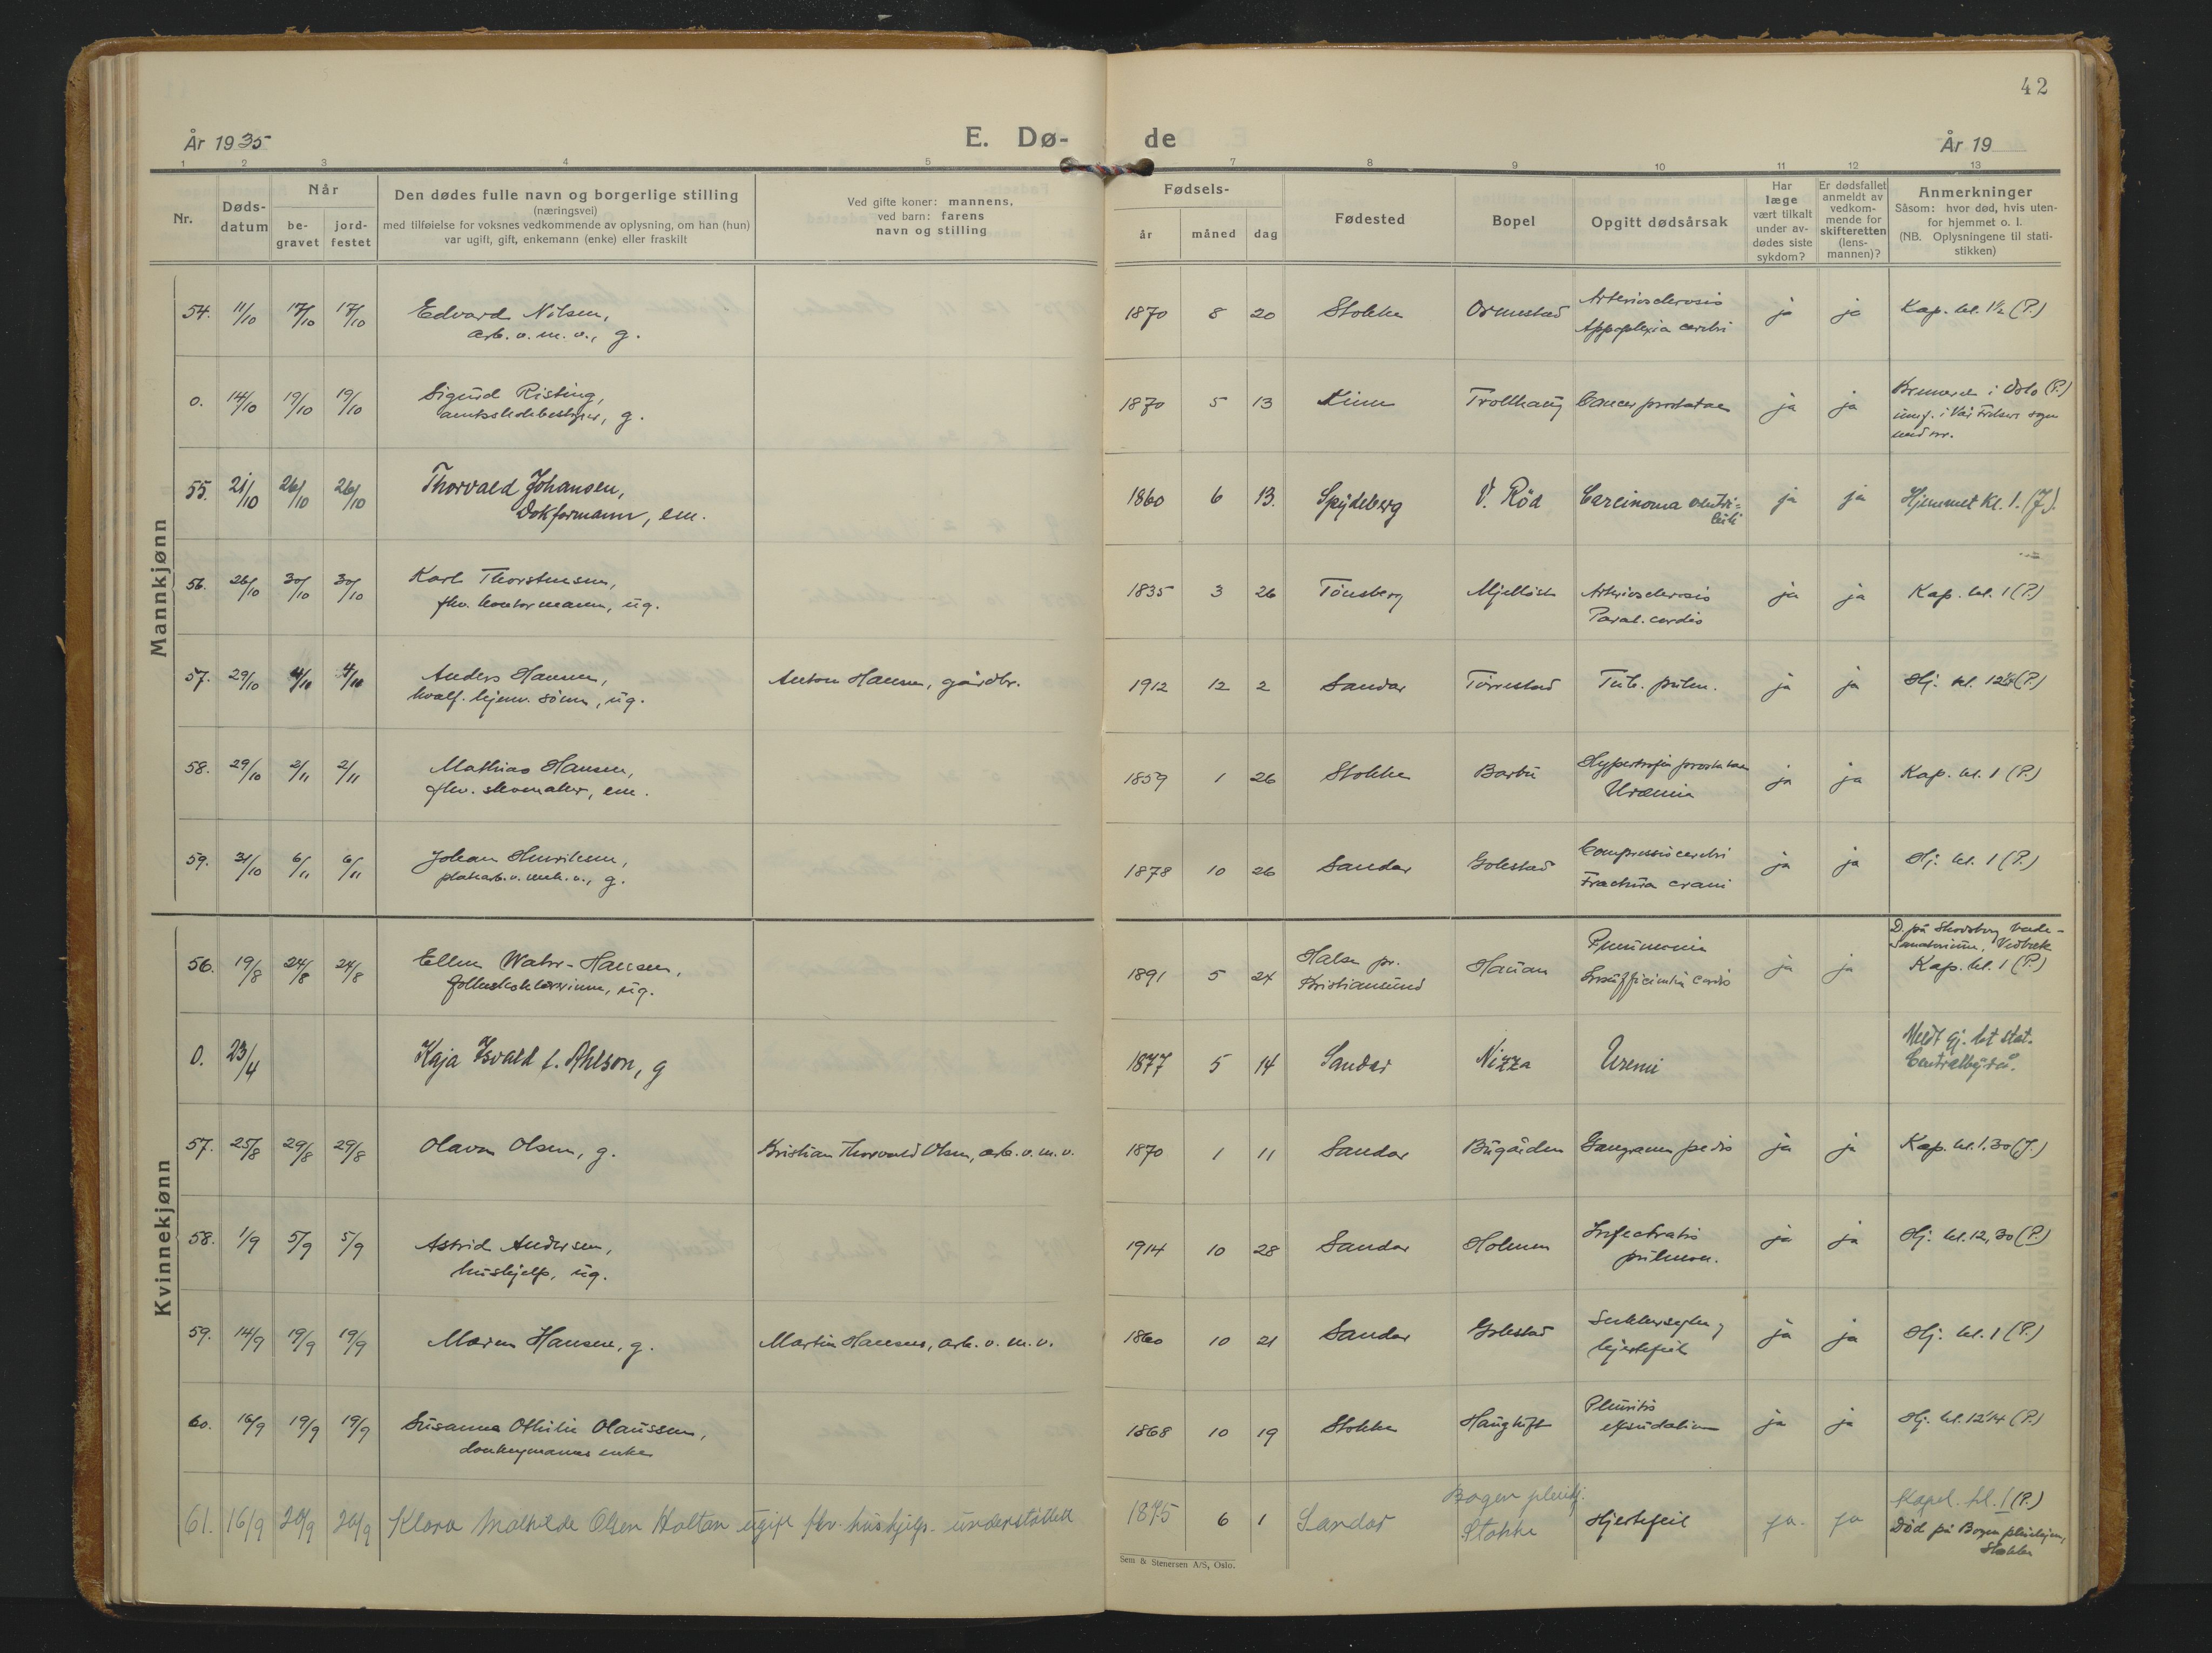 42
År 1935
E. Dø-
de
År 19
1 2 3 4 5 7 8 9 10 11 12 13
Nr.
Døds-
datum
Når
be-
gravet
jord-
festet
Den dødes fulle navn og borgerlige stilling
(næringsvei)
med tilføielse for voksnes vedkommende av oplysning, om han (hun)
var ugift, gift, enkemann (enke) eller fraskilt
Ved gifte koner: mannens,
ved barn: farens
navn og stilling
Fødsels-
år
måned
dag
Fødested
Bopel
Opgitt dødsårsak
Har
læge
vært tilkalt
under av-
dødes siste
sykdom?
Er dødsfallet
anmeldt av
vedkom-
mende for
skifteretten
(lens-
mannen)?
Anmerkninger
Såsom: hvor død, hvis uten-
for hjemmet o. l.
(NB. Oplysningene til stati-
stikken)
Mannkjønn
54. 11/10 17/10 17/10 Edvard Nilsen, 1870 8 20 Stokke Ormestad Arteriosclerosis ja ja Kap. kl. 1½ (P.)
arb. v. m. v., g. Appoplexia cerebri
0. 14/10 19/10 19/10 Sigurd Risting, 1870 5 13 Kinn Trollhaug Cancer prostatae ja ja Bremeres i Oslo (P.)
amtsskolebestyrer, g. i Vår Frelsers sogn
uten nr.
55. 21/10 26/10 26/10 Thorvald Johansen, 1860 6 13. Spydeberg V. Röd Carcinoma ventri- ja ja Hjemmet kl. 1. (J).
Dokformann, em. culi
56. 26/10 30/10 30/10 Karl Thorstensen, 1835 3 26 Tönsberg Mjellöst Arteriosclerosis ja ja Kap. kl. 1 (P.)
fhv. kontormann, ug. Paral. cordis
57. 29/10 4/11 4/11 Anders Hansen, Anton Hansen, gårdbr. 1912 12 2 Sandar Törrestad Tub. pulm. ja ja Hj. kl. 12½ (P.)
hvalf. hjemv. sönn, ug.
58. 29/10 2/11 2/11 Mathias Hansen, 1859 1 26 Stokke Barbu Hypertrofia prostatae ja ja Kap. kl. 1 (P.)
fhv. skomaker, em. Uræmia
59. 31/10 6/11 6/11 Johan Henriksen, 1878 10 26 Sandar Gokstad Compressio cerebri ja ja Hj. kl. 1 (P.)
platearb. v. mek. v., g. Fractura crani
Kvinnekjønn
56. 19/8 24/8 24/8 Ellen Wahr-Hansen, 1891 5 24 Halsa pr. Hauan Pneumonia ja ja D. på Skodsborg bade-
folkeskolelærerinne, ug. Kristiansund Insufficientia cordis Sanatorium, Vedbæk
Kap. kl. 1 (P.)
0. 23/4 Kaja Isvald f. Ahlson, g 1877 5 14 Sandar Nizza Uremi Meldt gj. det stat.
Centralbyrå.
57. 25/8 29/8 29/8 Olava Olsen, g. Kristian Thorvald Olsen, arb. v. m. v. 1870 1 11 Sandar Bugården Gangræna pedis ja ja Kap. kl. 1.30 (J.)
58. 1/9 5/9 5/9 Astrid Andersen, 1914 10 28 Sandar Holmen Infectratio ja ja Hj. kl. 12,30 (P.)
hushjelp, ug. pulmon.
59. 14/9 19/9 19/9 Maren Hansen, g. Martin Hansen, arb. v. m. v. 1860 10 21 Sandar Gokstad Sukkersyke, ja ja Hj. kl. 1 (P.)
hjertefeil
60. 16/9 19/9 19/9 Susanna Othilie Olaussen, 1868 10 19 Stokke Haugtuft Pleuritis ja ja Hj. kl. 12¼ (P.)
donkeymanns enke exsudativa
61. 16/9 20/9 20/9 Klara Mathilde Olsen Haltan ugift fhv. hushjelp. understöttet 1875 6 1 Sandar Bogen pleiehj. Hjertefeil ja. ja Kapel. kl. 1 (P.)
Stokke Död på Bogen pleiehjem,
Stokke
Sem & Stenersen A/S, Oslo.